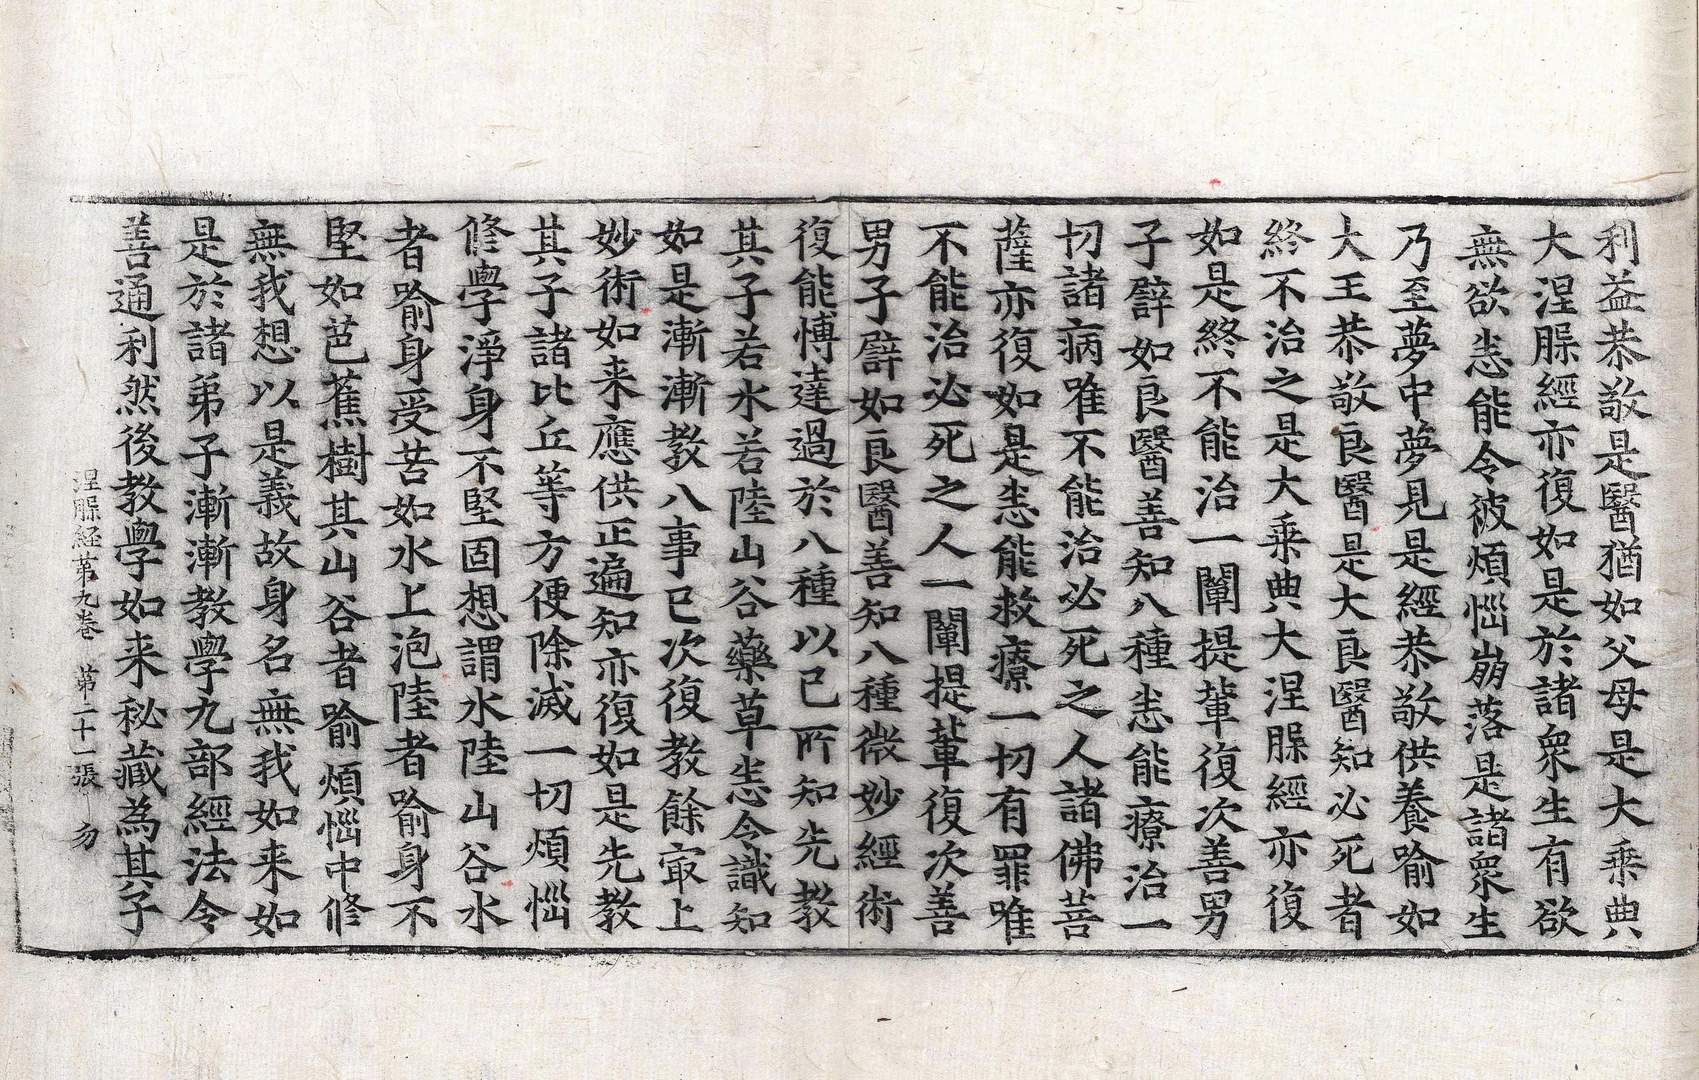 利益恭敬是醫猶如父母是大乘典
大涅槃經亦復如是於諸衆生有欲
無欲悉能令彼煩惱崩落是諸衆生
乃至夢中夢見是經恭敬供養喻如
大王恭敬良醫是大良醫知必死者
終不治之是大乘典大涅槃經亦復
如是終不能治一闡提輩復次善男
子譬如良醫善知八種悉能療治一
切諸病唯不能治必死之人諸佛菩
薩亦復如是悉能救療一切有罪唯
不能治必死之人一闡提輩復次善
男子譬如良醫善知八種微妙經術
復能博達過於八種以已所知先教
其子若水若陸山谷藥草悉令識知
如是漸漸教八事已次復教餘㝡上
妙術如来應供正遍知亦復如是先教
其子諸比丘等方便除滅一切煩惱
修學淨身不堅固想謂水陸山谷水
者喻身受苦如水上泡陸者喻身不
堅如芭蕉樹其山谷者喻煩惱中修
無我想以是義故身名無我如来如
是於諸弟子漸漸教學九部經法令
善通利然後教學如来秘藏為其子
涅槃経第九卷 第二十一張 勿